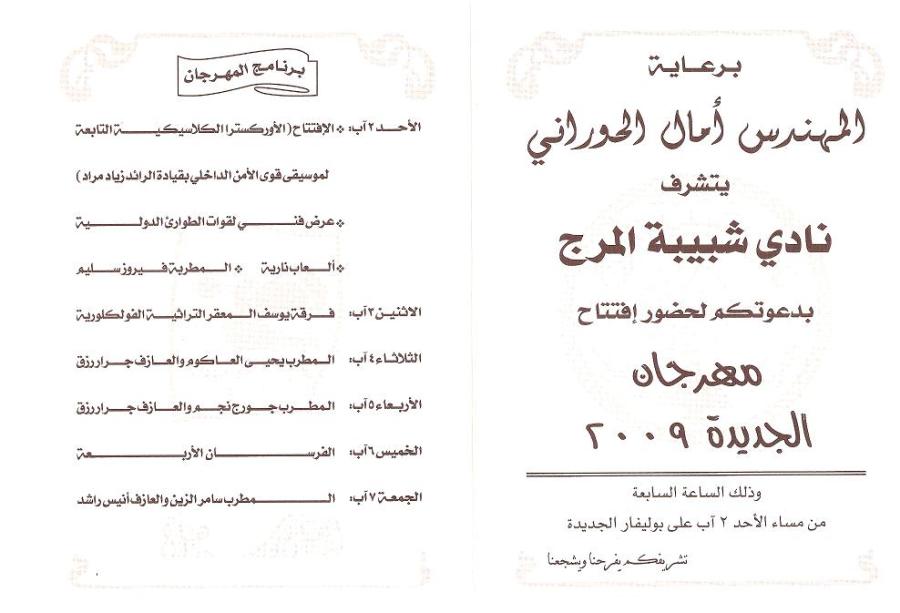 برعاية
المهندس أمال الحوراني
يتشرف
نادي شبيبة المرج
بدعوتكم لحضور إفتتاح
مهرجان
الجديدة ٢٠٠٩
وذلك الساعة السابعة
من مساء الأحد ٢ آب على بوليفار الجديدة
تشريفكم يفرحنا ويشجعنا
برنامج المهرجان
الأحد ٢ آب: * الإفتتاح (الأوركسترا الكلاسيكية التابعة
لموسيقى قوى الأمن الداخلي بقيادة الرائد زياد مراد)
* عرض فني لقوات الطوارئ الدولية
* ألعاب نارية * المطربة فيروز سليم
الاثنين ٣ آب: فرقة يوسف المعقر التراثية الفولكلورية
الثلاثاء ٤ آب: المطرب يحيى العاكوم والعازف جرار رزق
الأربعاء ٥ آب: المطرب جورج نجم والعازف جرار رزق
الخميس ٦ آب: الفرسان الأربعة
الجمعة ٧ آب: المطرب سامر الزين والعازف أنيس راشد